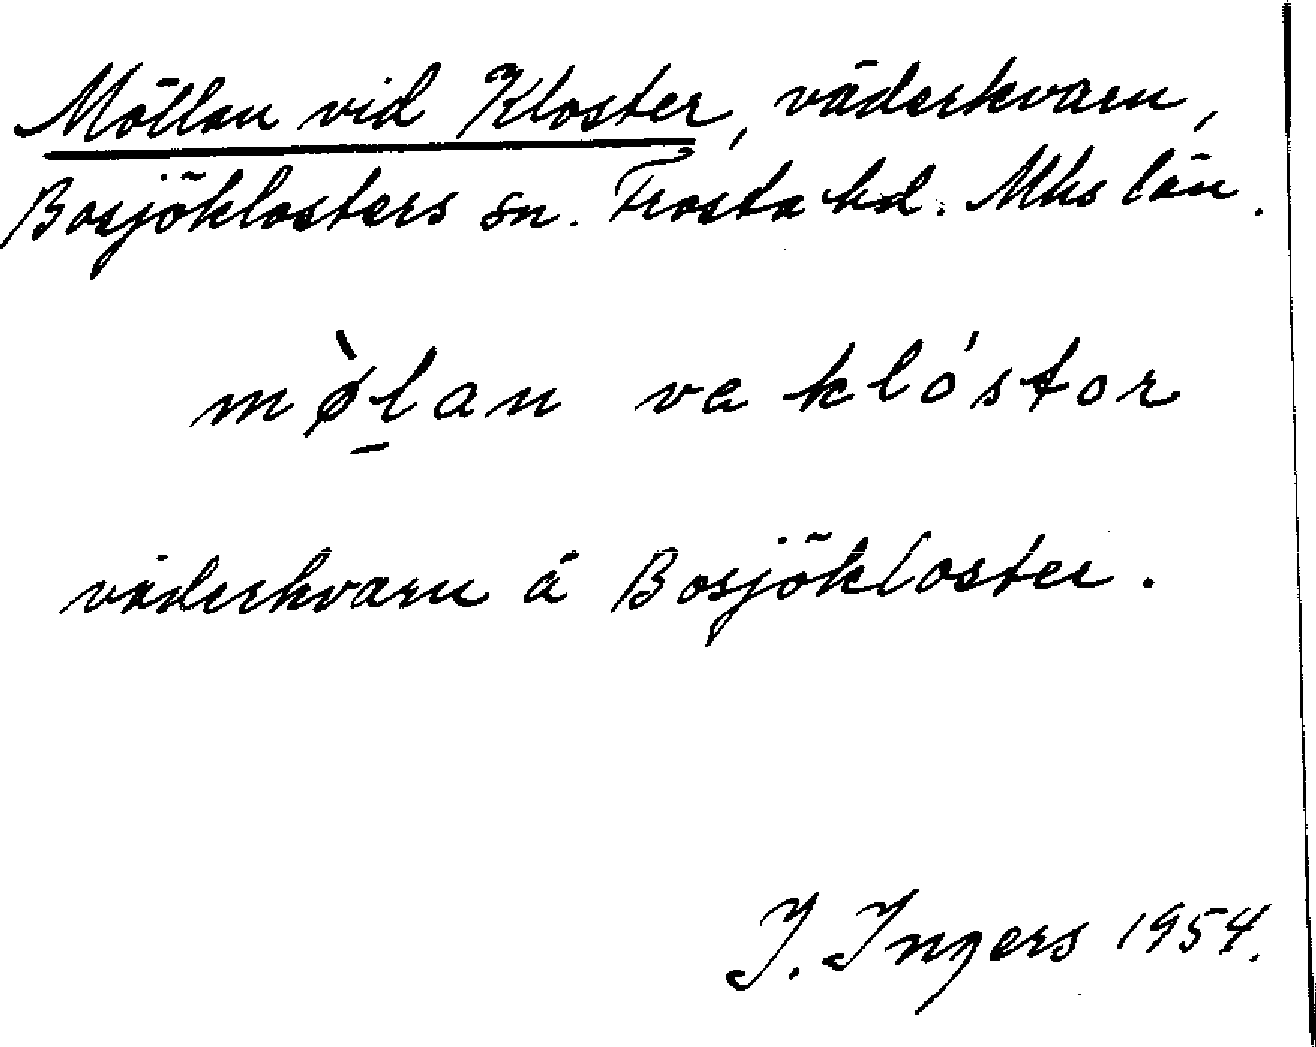 Möllan vid Kloster, väderkvarn,
Bosjöklosters sn. Frosta hd. Mhs län.
mø̀l̠an va klóstor
väderkvarn å Bosjökloster.
I. Ingers 1954.